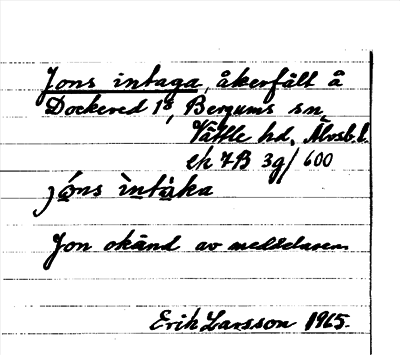 Jons intaga, åkerfält å
Dockered 1³, Bergums sn,
Vättle hd, Älvsb. l.
ek 7B 3g/600
jóns ìntàka
Jon okänd av meddelaren
Erik Larsson 1965.